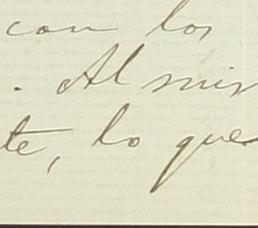 con los
. Al mis
te, lo que